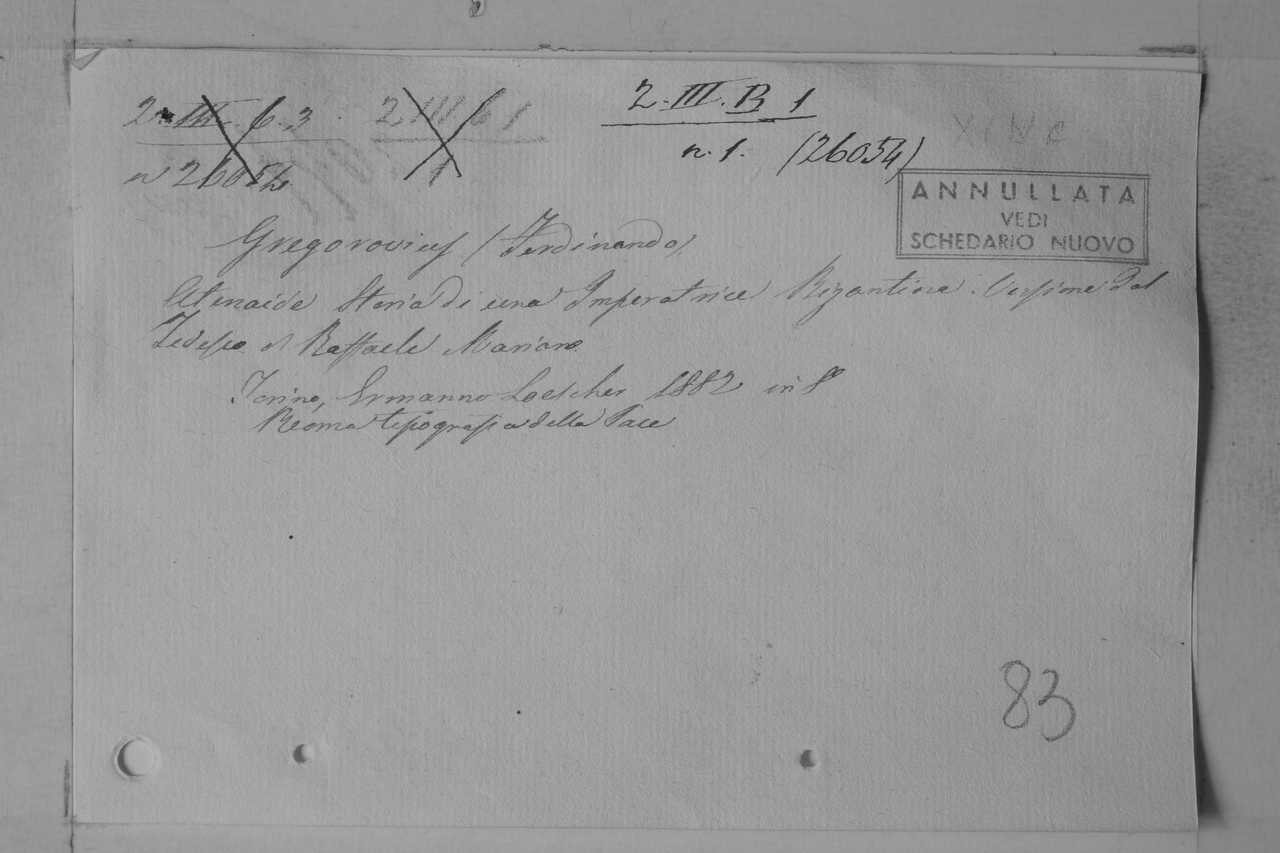 2. III. 6. 3
2 III 6 1
2. III. B 1
n 26054
1
n. 1. (26054)
ANNULLATA
VEDI
SCHEDARIO NUOVO
Gregorovius (Ferdinando)
Atenaide Storia di una Imperatrice Bizantina. Versione dal
Tedesco di Raffaele Mariano
Torino, Ermanno Loescher 1882 in 8º
Roma tipografia della Pace
83